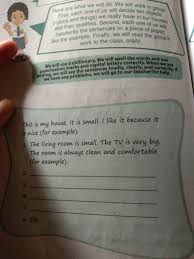 Here are what we will do. We will work in group.
First, each one of us will decide ten objects
(rooms and things) we really have in our house
and their qualities. Second, each one of us will
handwrite the sentences on a piece of paper,
like the example. Finally, we will read the group's
work to the class, orally.
We will use a dictionary. We will spell the words and use
punctuation marks and capital letters correctly. When we are
writing, we will say the sentences loudly, clearly, and correctly. If
we have any problems, we will go to our teacher for help.
This is my house. It is small. I like it because it
is nice (for example).
The living room is small. The TV is very big.
The room is always clean and comfortable
(for example).
Etc.